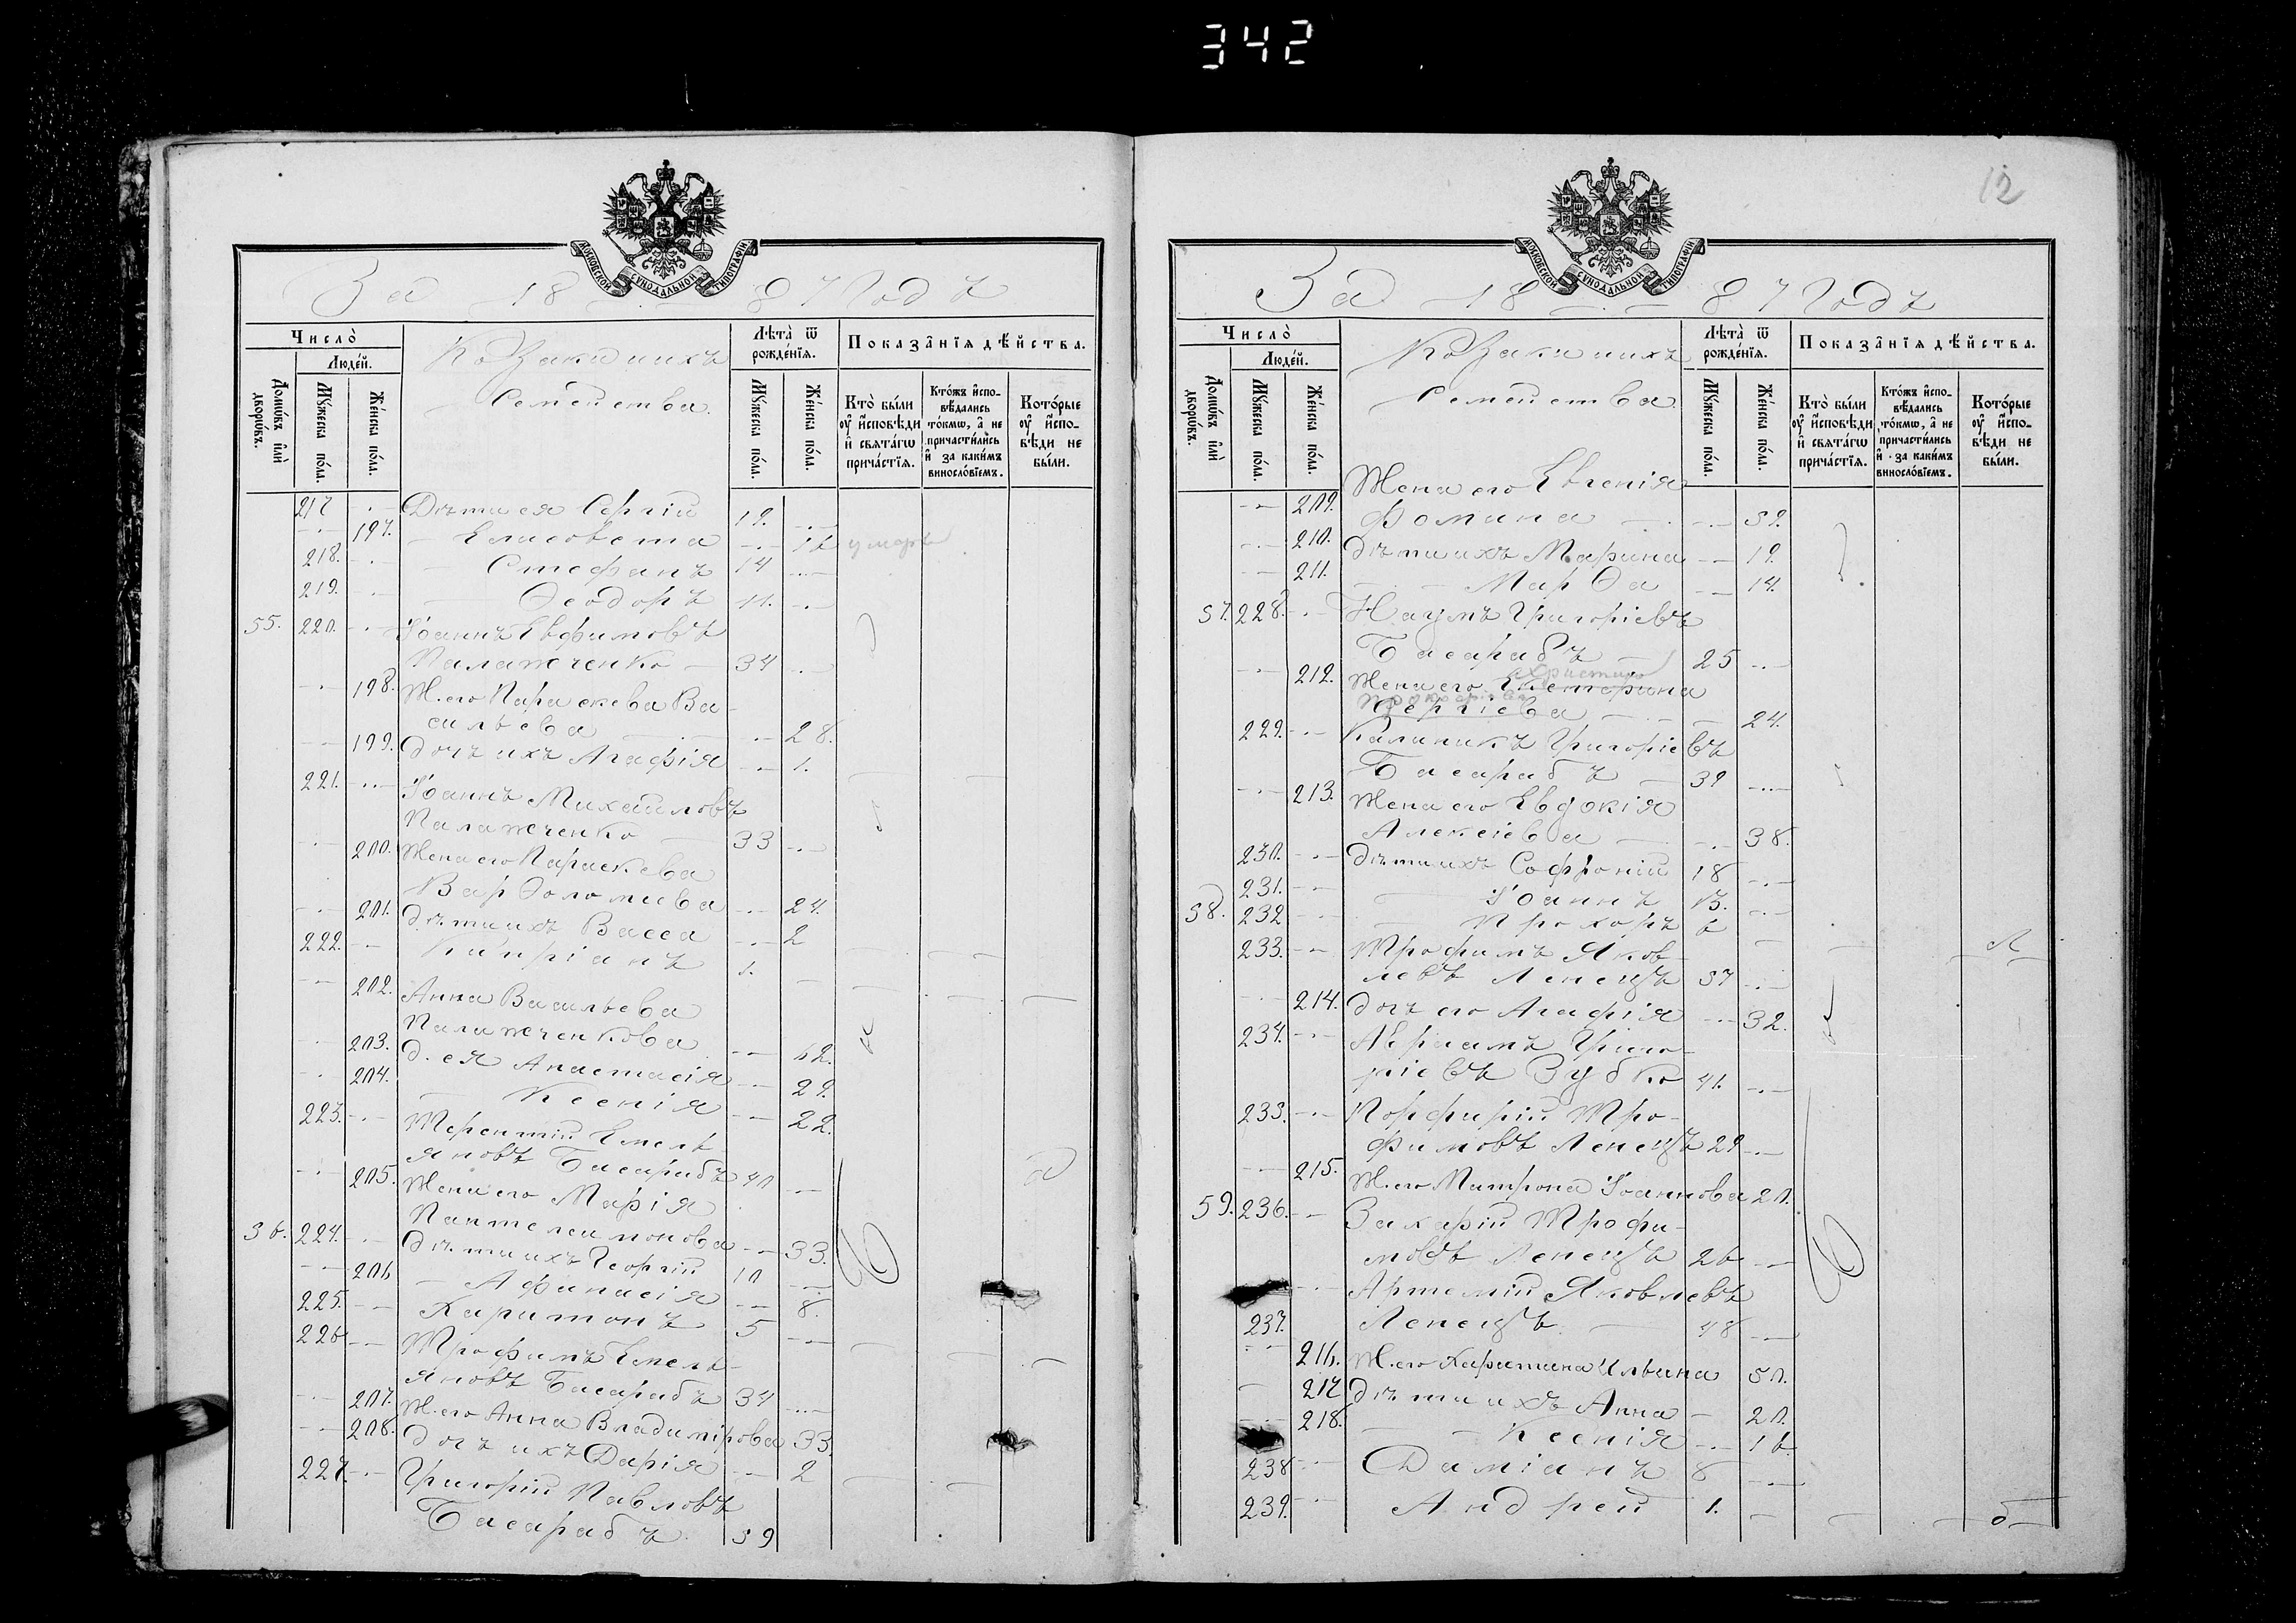 342
МОСКОВСКОЙ СУНОДАЛЬНОЙ ТИПОГРАФІИ
За 1887 Годъ
Число̀
Люде́й.
Домѡ́въ и҆лѝ дворѡ́въ.
Мꙋ́жеска по́ла.
Же́нска по́ла.
Козачіихъ
Семейства.
Лѣта̀ ѿ рожде́нїѧ.
Мꙋ́жеска по́ла.
Же́нска по́ла.
Показа̂нїѧ дѣ́йства.
Кто̀ бы́ли оу҆ и҆сповѣди и҆ свѧта́гѡ прича́стїѧ.
Кто́жъ и҆сповѣдались то́кмѡ, а҆ не причасти́лись и҆ за каки́мъ винословїемъ.
Кото́рые оу҆ и҆сповѣди не бы́ли.
217 Дѣти ея Сергій 19.
197. Елисовета 16 умерла
218. Стефанъ 14
219. Ѳеодоръ 11.
55. 220. Іоаннъ Евфимовъ
Палажченко 34
198. Ж. его Параскева Ва-
сильева 28.
199. Дочъ ихъ Агафія 1.
221. Іоаннъ Михаиловъ
Палажченко 33
200. Жена его Параскева
Варѳоломиева 24.
201. Дѣти ихъ Васса 2
222. Кипріанъ 1.
202. Анна Васильева
Палажченкова 62.
203. Д. ея Анастасія 29.
204. Ксенія 22.
223. Терентій Емель
яновъ Басарабъ 40
205. Жена его Марія
Пантелеимонова 33.
56. 224. Дѣти ихъ Георгій 10
206 Афанасія 8.
225. Харитонъ 5
226 Трофимъ Емель-
яновъ Басарабъ 34
207. Ж. его Анна Владимірова 33.
208. Дочъ ихъ Дарія 2
227. Григорій Павловъ
Басарабъ 59
12
МОСКОВСКОЙ СУНОДАЛЬНОЙ ТИПОГРАФІИ
За 1887 Годъ
Число̀
Люде́й.
Домѡ́въ и҆лѝ дворѡ́въ.
Мꙋ́жеска по́ла.
Же́нска по́ла.
Козачіихъ
Семейства.
Лѣта̀ ѿ рожде́нїѧ.
Мꙋ́жеска по́ла.
Же́нска по́ла.
Показа̂нїѧ дѣ́йства.
Кто̀ бы́ли оу҆ и҆сповѣди и҆ свѧта́гѡ прича́стїѧ.
Кто́жъ и҆сповѣдались то́кмѡ, а҆ не причасти́лись и҆ за каки́мъ винословїемъ.
Кото́рые оу҆ и҆сповѣди не бы́ли.
209. Жена его Евгенія
Фомина 59.
210. Дѣти ихъ Марина 19.
211. Марѳа 14.
57. 228. Наумъ Григоріевъ
Басарабъ 25
212. Жена его Екатерина
Сергіева 24.
229. Калиникъ Григоріевъ
Басарабъ 39
213. Жена его Евдокія
Алексіева 38.
230. Дѣти ихъ Софроній 18
231. Іоаннъ 13.
58. 232 Прохоръ 6
233. Трофимъ Яков-
левъ Ленецъ 57
214. Дочъ его Агафія 32.
234. Авраамъ Григо-
ріевъ Зубко 41.
235. Порфирій Тро-
фимовъ Ленецъ 29
215. Ж. его Матрона Іоаннова 20.
59. 236. Захарій Трофи-
мовъ Ленецъ 26
Артемій Яковлевъ
237. Ленецъ 48
216. Ж. его Харитина Ильина 50.
217 Дѣти ихъ Анна 20.
218. Ксенія 16
238 Даміанъ 8
239. Андрей 1.